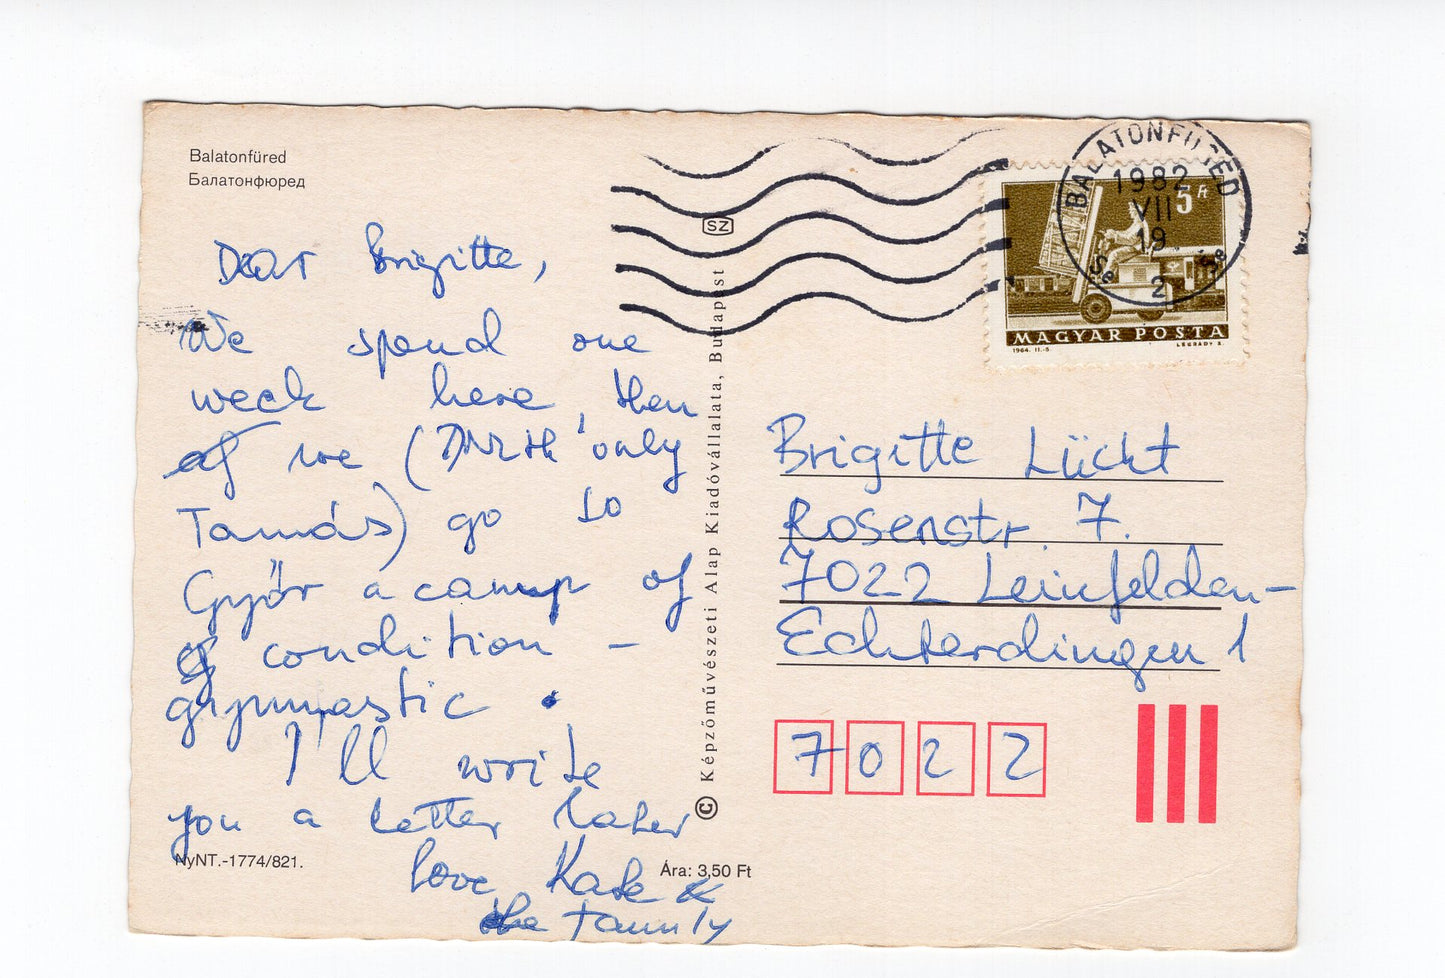 Balatonfüred
Балатонфюред
Dear Brigitte,
We spend one
week here, then
we ( only
Tamás) go to
Győr a camp of
condition -
gymnastic.
I'll write
you a letter later
love Kate &
the family
NyNT.-1774/821.
Ára: 3,50 Ft
© Képzőművészeti Alap Kiadóvállalata, Budapest
SZ
BALATONFÜRED
1982
VII
19
2
5 Ft
MAGYAR POSTA
1964. II.-5.
LÉGRÁDY S.
Brigitte Lücht
Rosenstr. 7.
7022 Leinfelden-
Echterdingen 1
7022